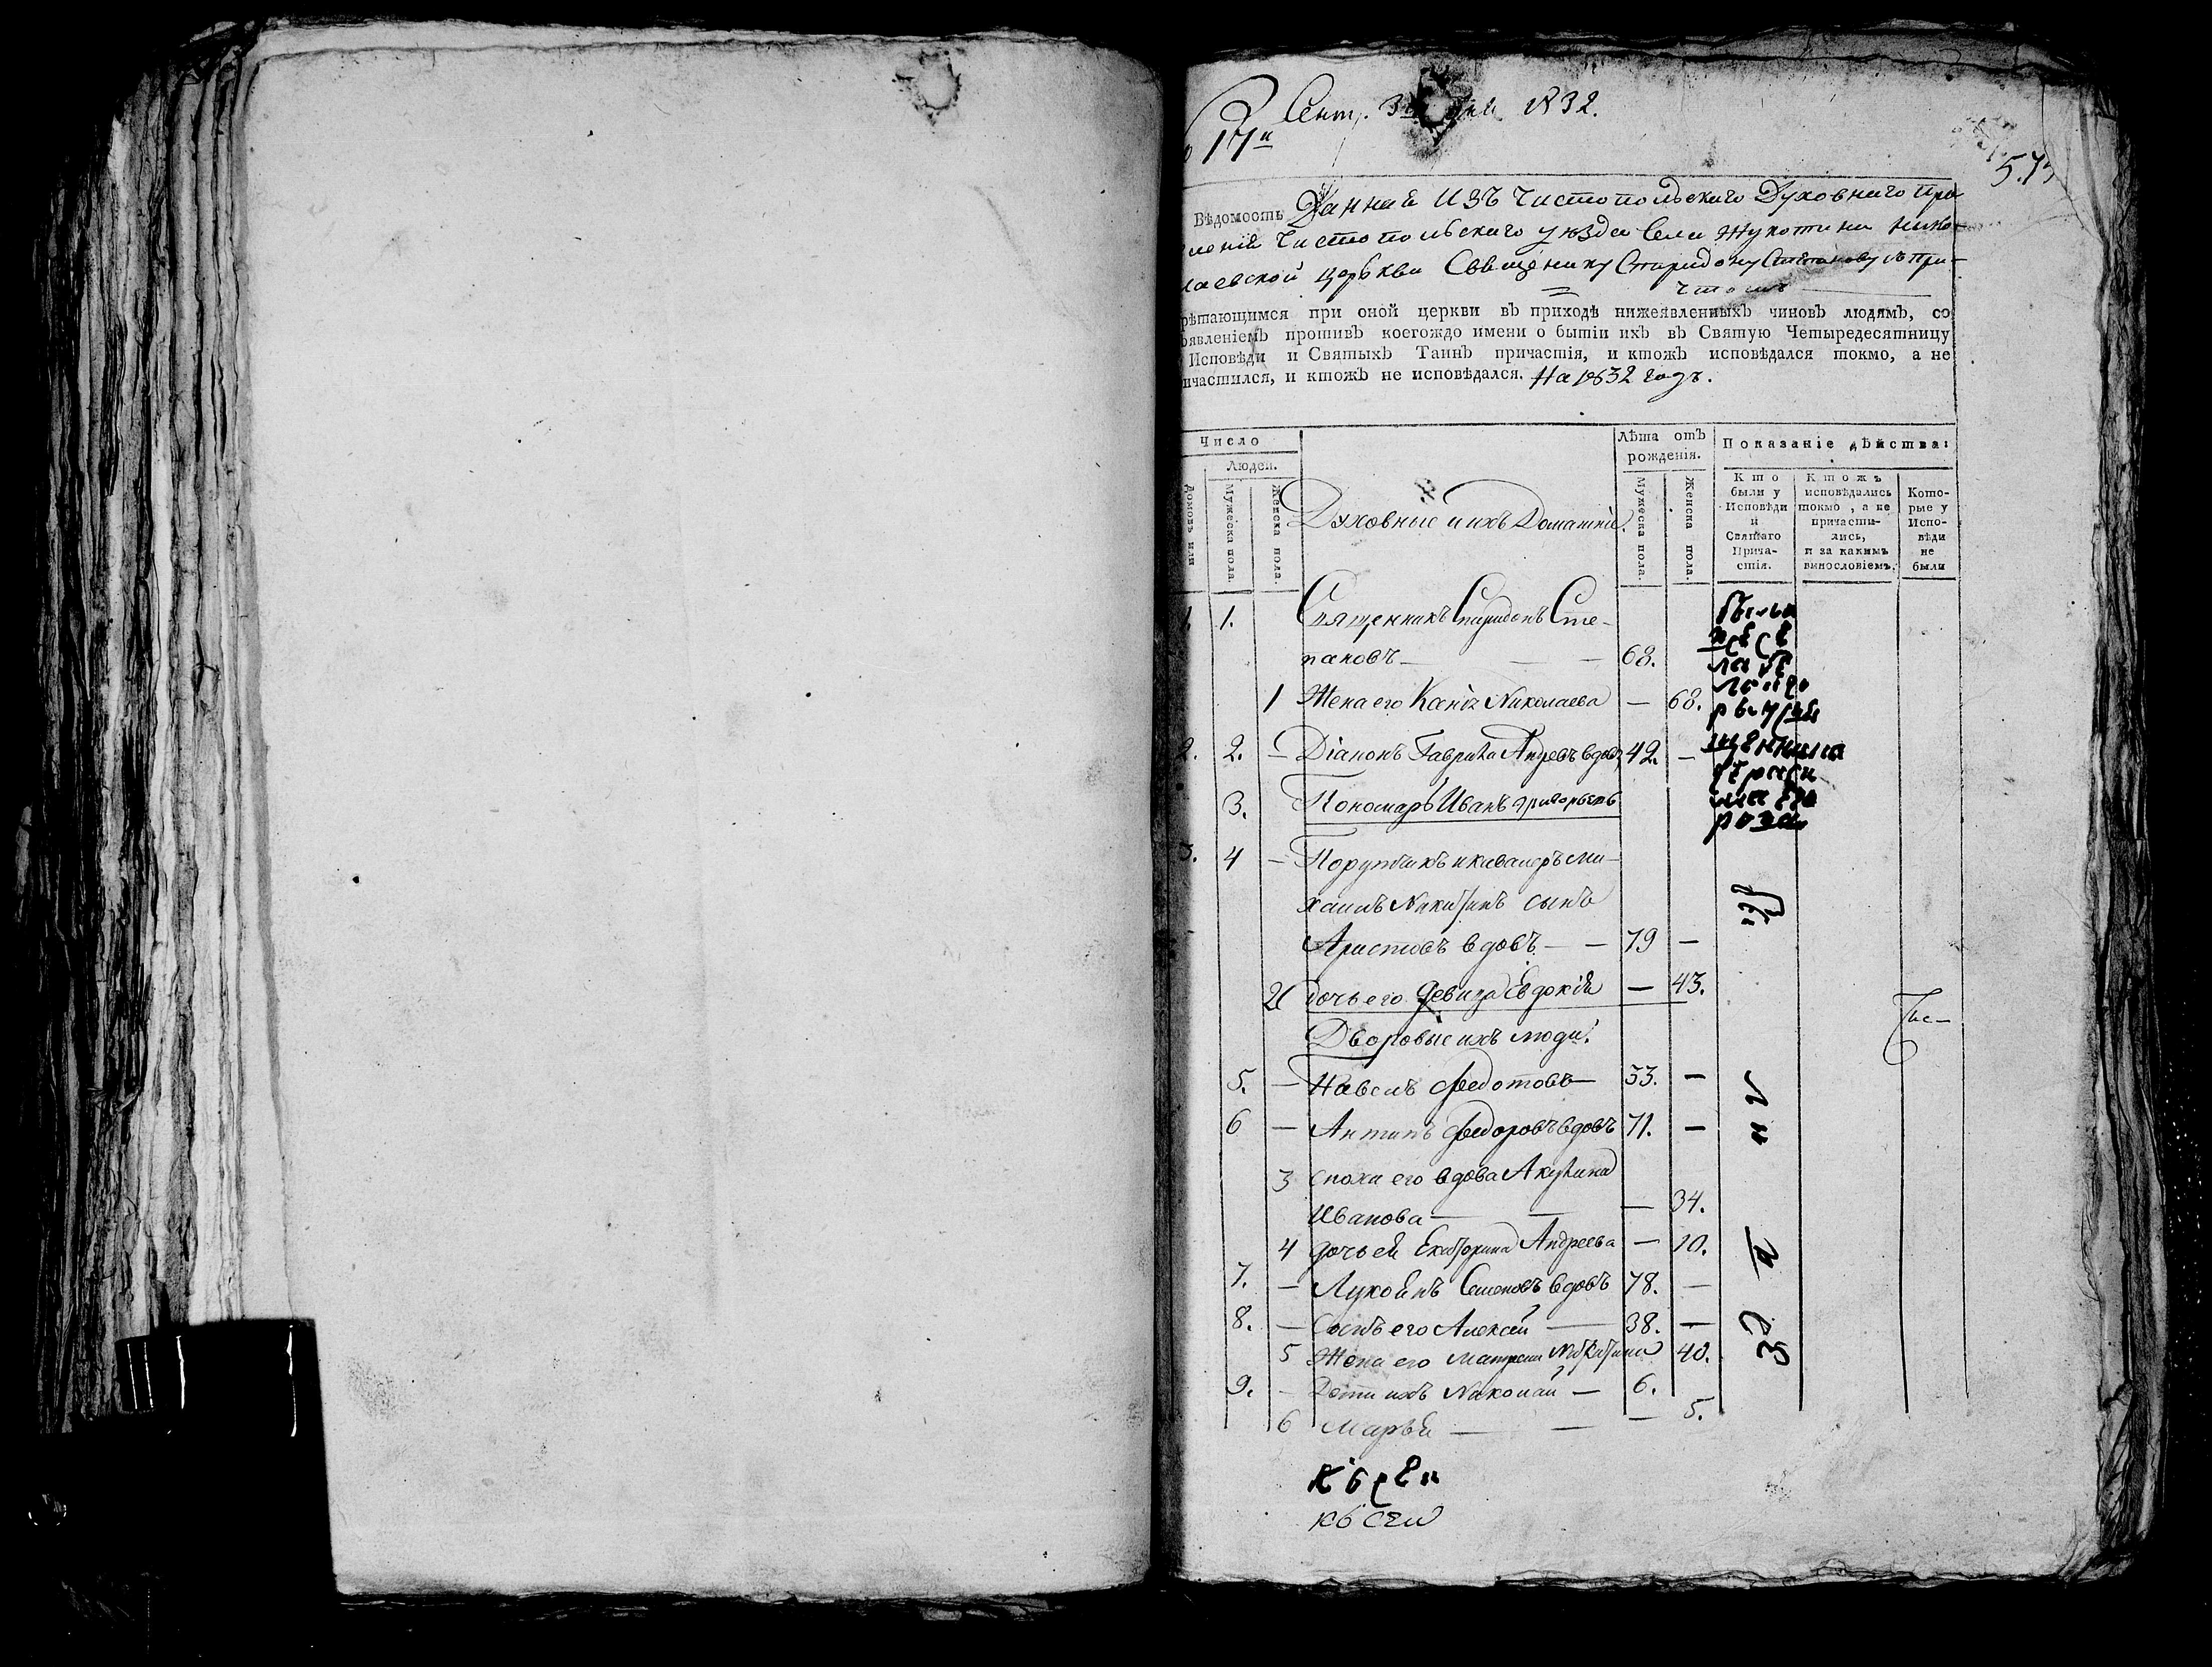 Сент. 3 дня 1832.
17й
573
Вѣдомость Данная изъ Чистопольскаго Духовнаго пра
ленія Чистопольскаго уѣзда Села Жукотина Нико-
лаевской церькви Священнику Спиридону Степанову съ при-
чтомъ
рѣтающимся при оной церкви въ приходѣ нижеявленныхъ чиновъ людямъ, со
явленіемъ противъ коегождо имени о бытіи ихъ въ Святую Четыредесятницу
Исповѣди и Святыхъ Таинъ причастія, и ктожъ исповѣдался токмо, а не
ичастился, и ктожъ не исповѣдался. На 1832 годъ.
Число
Людей.
Домовъ или
Мужеска пола.
Женска пола.
Духовные и ихъ Домашніе.
Лѣта отъ
рожденія.
Мужеска пола.
Женска пола.
Показаніе дѣйства:
Кто
были у
Исповѣди
и
Святаго
Прича-
стія.
Ктожъ
исповѣдались
токмо, а не
причасти-
лись,
и за какимъ
винословіемъ.
Кото-
рые у
Испо-
вѣди
не
были
1. 1. Священникъ Спиридонъ Сте-
пановъ — — — 68.
1 Жена его Николаева — 68.
2. 2. — Діаконъ Гаврила Андревъ вдовъ 42. —
3. Пономарь Иванъ Григорьевъ
3. 4 — Порутчикъ и кавалеръ Ми-
хаилъ Никитинъ сынъ
Аристовъ вдовъ — — 79 —
2 Дочь его девица Евдокія — 43.
Дворовые ихъ люди.
5. — Павелъ Федотовъ — 53. —
6 — Антипъ Федоровъ вдовъ 71. —
3 Сноха его вдова Акулина
Иванова — — — 34.
4 дочь ей Екатерина Андреева — 10.
7. — Семеновъ вдовъ 78. —
8. — Сынъ его Алексѣй — 38. —
5 Жена его Матрена Никитина 40.
9. — Дети ихъ Николай — 6.
6 Марья — — — 5.
Къ сей
къ сей